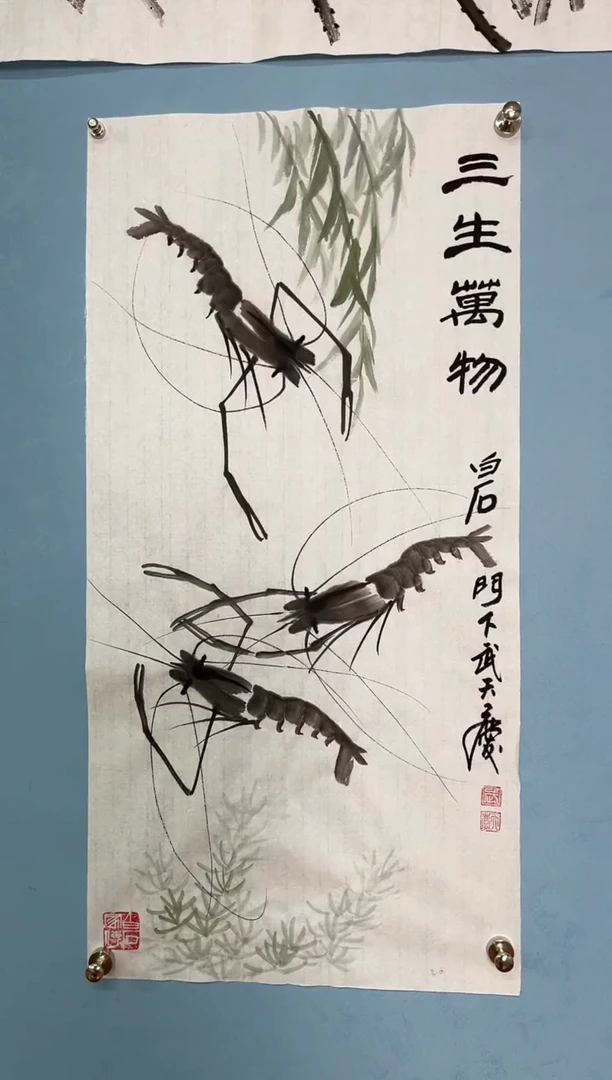 三生萬物
白石
門下武天慶